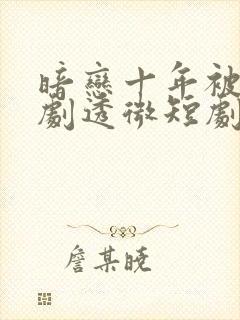 暗戀十年被
劇透微短劇
詹某曉